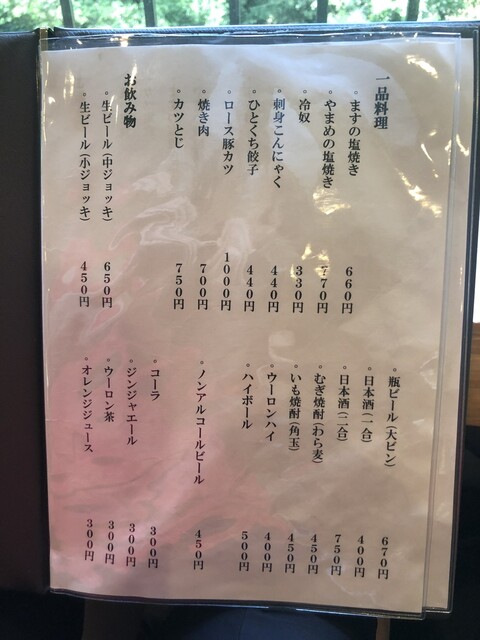 一品料理
。ますの塩焼き 660円
。やまめの塩焼き 770円
。冷奴 330円
。刺身こんにゃく 440円
。ひとくち餃子 440円
。ロース豚カツ 1000円
。焼き肉 700円
。カツとじ 750円
お飲み物
。生ビール（中ジョッキ） 650円
。生ビール（小ジョッキ） 450円
。瓶ビール（大ビン） 670円
。日本酒（一合） 400円
。日本酒（二合） 750円
。むぎ焼酎（わら麦） 450円
。いも焼酎（角玉） 450円
。ウーロンハイ 400円
。ハイボール 500円
。ノンアルコールビール 450円
。コーラ 300円
。ジンジャエール 300円
。ウーロン茶 300円
。オレンジジュース 300円